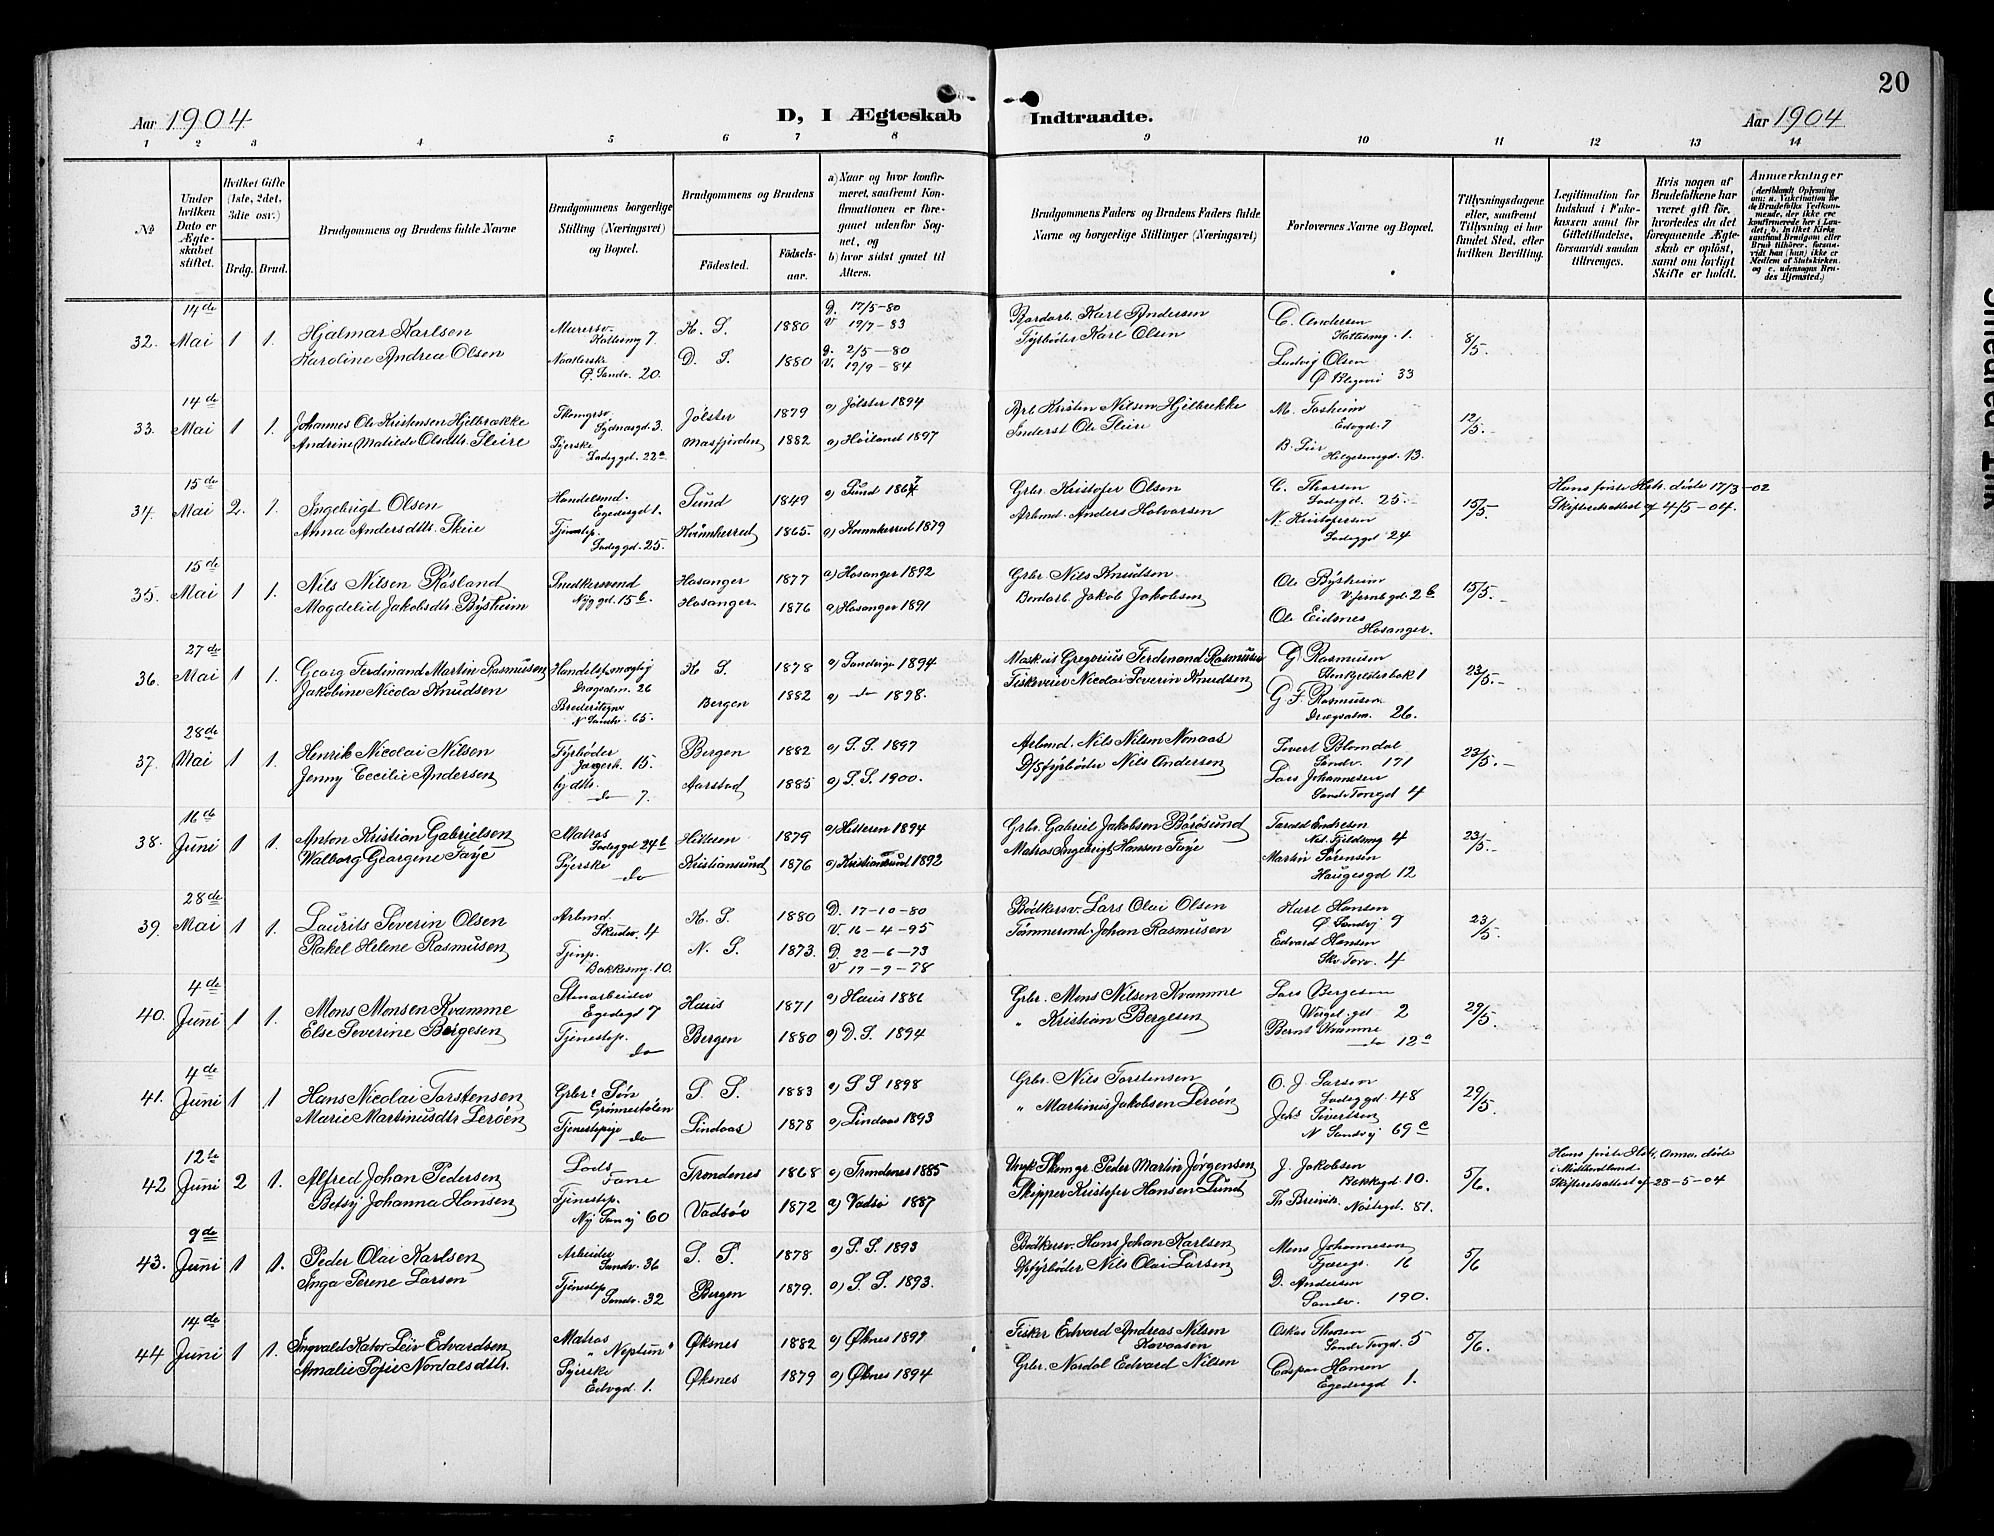 20
Aar 1904
D, I Ægteskab
Indtraadte.
Aar 1904
1 2 3 4 5 6 7 8 9 10 11 12 13 14
No
Under hvilken Dato er Ægteskabet stiftet.
Hvilket Gifte (1ste, 2det, 3die osv.)
Brdg. Brud.
Brudgommens og Brudens fulde Navne
Brudgommens borgerlige Stilling (Næringsvei) og Bopæl.
Brudgommens og Brudens
Fødested.
Fødselsaar.
a) Naar og hvor konfirmeret, saafremt Konfirmationen er foregaaet udenfor Sognet, og
b) hvor sidst gaaet til Alters.
Brudgommens Faders og Brudens Faders fulde Navne og borgerlige Stillinger (Næringsvei)
Forlovernes Navne og Bopæl.
Tillysningsdagene eller, saafremt Tillysning ei har fundet Sted, efter hvilken Bevilling.
Legitimation for Indskud i Enkekassen samt for Giftetilladelse, forsaavidt saadan tiltrænges.
Hvis nogen af Brudefolkene har været gift før, hvorledes da det foregaaende Ægteskab er opløst, samt om lovligt Skifte er holdt.
Anmærkninger
32. 14de Mai 1 1.
Hjalmar Karlsen
K. S. 1880
D. 17/5-80
V. 19/7-83
Bordarb. Karl Andersen
C. Andersen
1.
8/5.
Karoline Andrea Olsen
G. Sandv. 20.
D. S. 1880
D. 2/5-80
V. 19/9-84
Fyrbøder Karl Olsen
Ludvig Olsen
33
33. 14de Mai 1 1.
Johannes Ole Kristensen Hjelbrække
Skomgrsv. Sydnæsgd. 3.
Jølster 1879
a) Jølster 1894
Arb. Kristen Nilsen Hjelbrekke
M. Tosheim
Edvgd. 7
12/5.
Andrine Matilde Olsdtr. Sleire
Syerske Ladeggd. 22a
Masfjorden 1882
a) Høiland 1897
Inderst Ole Sleire
Helgesensgd. 13.
34. 15de Mai 2. 1.
Ingebrigt Olsen
Handelsmd. Egedesgd. 1.
Sund 1849
a) Sund 1867
Grbr. Kristofer Olsen
C. Thorsen
Ladegd. 25.
15/5.
Hans første Hstr. døde 17/3-02
Skifteretsattest af 4/5-04.
Anna Andersdtr. Skeie
Tjenestep. Ladeggd. 25.
Kvinnherred 1865.
a) Kvinnherred 1879
Arbmd. Anders Halvorsen
N. Kristofersen
Ladeggd 24
35. 15de Mai 1 1.
Nils Nilsen Røsland
Snedkersvend Nyggd. 15b.
Hosanger 1877
a) Hosanger 1892
Grbr. Nils Knudsen
Ole Bysheim
V. Jernbgd. 2b
15/5.
Magdelid Jakobsdtr. Bysheim
Hosanger. 1876
a) Hosanger 1891
Bordarb. Jakob Jakobsen
Ole Eidsnes
Hosanger.
36. 27de Mai 1 1.
Georg Ferdinand Martin Rasmusen
Handelsfuldmægtig
26
K. S. 1878
a) Sandvigs 1894
Maskist Gregorius Ferdinand Rasmusen
G Rasmusen
1
23/5.
Jakobine Nicola Knudsen
N Sandv. 65.
Bergen 1882
a) do 1898.
Fiskeveier Nicolai Severin Knudsen
G F. Rasmusen
26.
37. 28de Mai 1 1.
Henrik Nicolai Nilsen
Fyrbøder
15.
Bergen 1882
a) S. S. 1897
Arbmd. Nils Nilsen Monaas
Sivert Blomdal
Sandv. 171
23/5.
Jenny Cecilie Andersen
do 7.
Aarstad 1885
a) S. S. 1900.
D/Sfyrbøder Nils Andersen
Lars Johannesen
Sandv Torvgd 4
38. 16de Juni 1 1.
Anton Kristian Gabrielsen
Matros Ladeggd 24b
Hitteren 1879
a) Hitteren 1894
Grbr. Gabriel Jakobsen Børøsund
Tarald Endresen
4
23/5.
Walborg Georgene Faye
Syerske do
Kristiansund 1876
a) Kristiansund 1892
Matros Ingebrigt Hansen Faye
Martin Sørensen
Haugesgd 12
39. 28de Mai 1 1.
Laurits Severin Olsen
Arbmd.
Skudev. 4
K. S. 1880
D. 17-10-80
V. 16-4-95
Bødkersv. Lars Olai Olsen
Karl Hansen
Ø Sandvj 9
23/5.
Rakel Helene Rasmusen
Tjenp.
Bakkesmg. 10.
N. S. 1873.
D. 22-6-73
V 17-9-78
Tømmermd. Johan Rasmusen
Edvard Hansen
4
40. 4de Juni 1 1.
Mons Monsen Kvamme
Stenarbeider Egedesgd 7
Haus 1871
a) Haus 1886
Grbr. Mons Nilsen Kvamme
Lars Bergesen
2
29/5.
Else Severine Bergesen
Tjenestep. do
Bergen 1880
a) D. S. 1894
" Kristian Bergesen
Bernt Kvamme
do 12a
41. 4de Juni 1 1
Hans Nicolai Torstensen
Grbrs Søn Grønnestølen
S. S. 1883
a) S S 1898
Grbr. Nils Torstensen
O. J. Larsen
Ladeggd. 48
29/5.
Marie Martinusdtr Lerøen
Tjenestepige do
Lindaas 1878
a) Lindaas 1893
" Martinus Jakobsen Lerøen
Johs Sivertsen
N Sandvj 69c
42 12te Juni 2 1.
Alfred Johan Pedersen
Lods Fane
Trondenes 1868
a) Trondenes 1885
Skomgr. Peder Martin Jørgensen
J. Jakobsen
Bakkegd 10.
5/6.
Hans første Hstr. Anna, døde
Skifteretsattest af 28-5-04
Betsy Johanna Hansen
Tjenestep. Ny Sanvj 60
Vadsø 1872
a) Vadsø 1887
Skipper Kristofer Hansen Lund
Th Breivik.
Nøstegd. 81.
43. 9de Juni 1 1.
Peder Olai Karlsen
Arbeider Sandv. 36
S. S. 1878
a) S. S. 1893
Bødkersv. Hans Johan Karlsen
Mons Johannesen
16
5/6
Inga Serene Larsen
Tjenestep Sandv. 32
Bergen 1879.
a) S. S. 1893.
D/sfyrbøder Nils Olai Larsen
D. Andersen
Sandv. 190.
44 14de Juni 1 1.
Ingvald Kator Leiv Edvardsen
Matros "Neptun"
Øksnes 1882
a) Øknes 1899
Fisker Edvard Andreas Nilsen Kavaasen
Oskar Thoresen
Sandv Torgd. 5
5/6.
Amalie Sofie Nordalsdtr.
Syerske Edvgd. 1.
Øksnes 1879
a) Øknes 1894
Grbr. Nordal Edvard Nilsen
Caspar Hansen
Egedesgd 1.